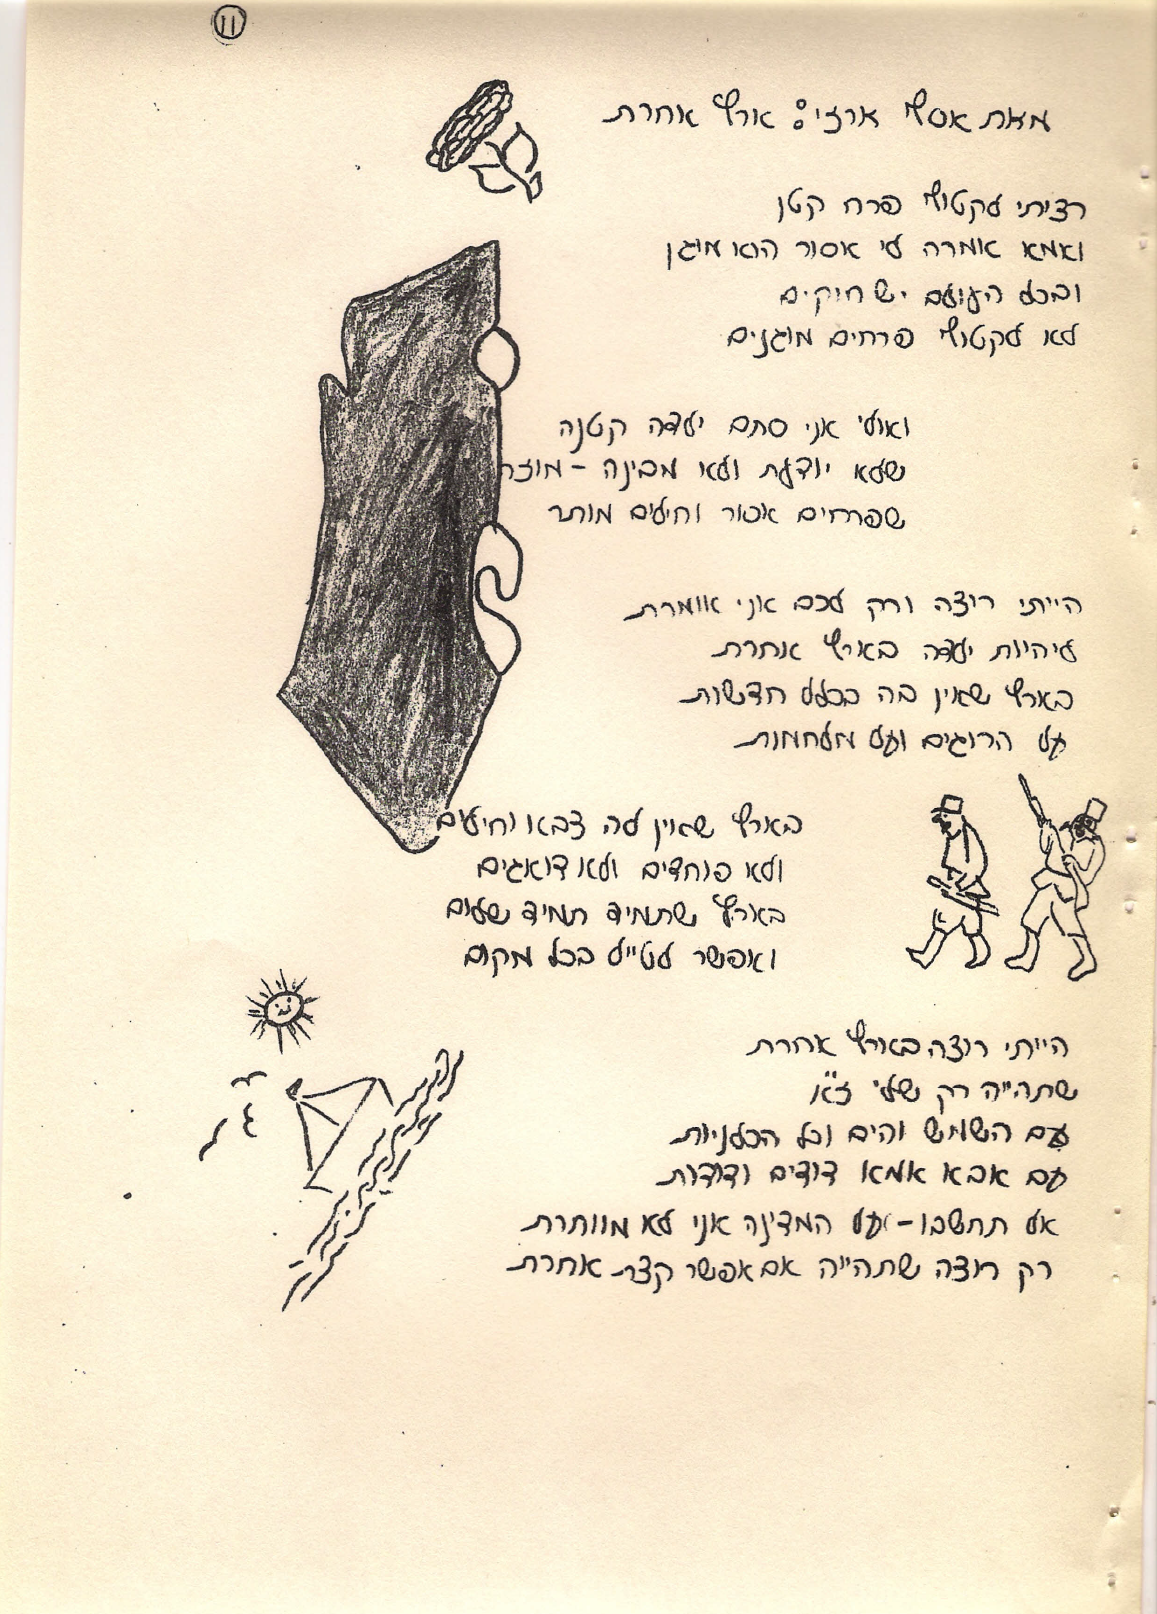 11
מאת אסף ארזי: ארץ אחרת
רציתי לקטוף פרח קטן
ואמא אומרה לי אסור הוא מוגן
ובכל העולם יש חוקים
לא לקטוף פרחים מוגנים
ואולי אני סתם ילדה קטנה
שלא יודעת ולא מבינה - מוזר
שפרחים אסור וחילים מותר
הייתי רוצה ורק לכם אני אומרת
ליהיות ילדה בארץ אחרת
בארץ שאין בה בכלל חדשות
על הרוגים ועל מלחמות
בארץ שאין לה צבא וחילים
ולא פוחדים ולא דואגים
בארץ שתמיד תמיד שלום
ואפשר לטייל בכל מקום
הייתי רוצה בארץ אחרת
שתהייה רק שלי
עם השמש והים וכל הכלניות
עם אבא אמא דודים ודודות
אל תחשבו - על המדינה אני לא מוותרת
רק רוצה שתהייה אם אפשר קצת אחרת